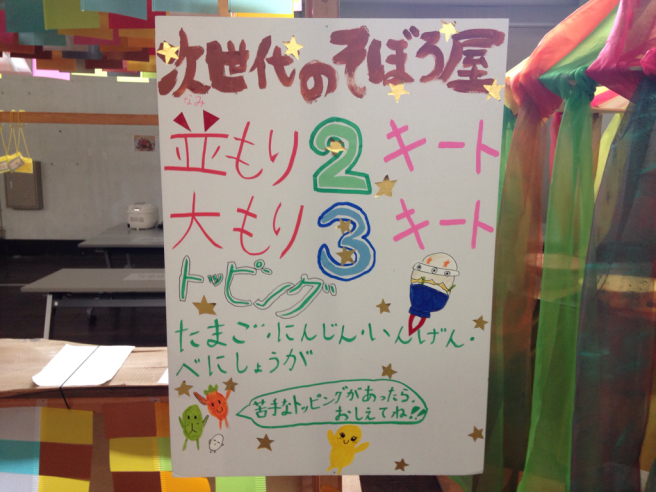 次世代のそぼろ屋
なみ
並もり2キート
大もり3キート
トッピング
たまご・にんじん・いんげん・
べにしょうが
苦手なトッピングがあったら、
おしえてね!!